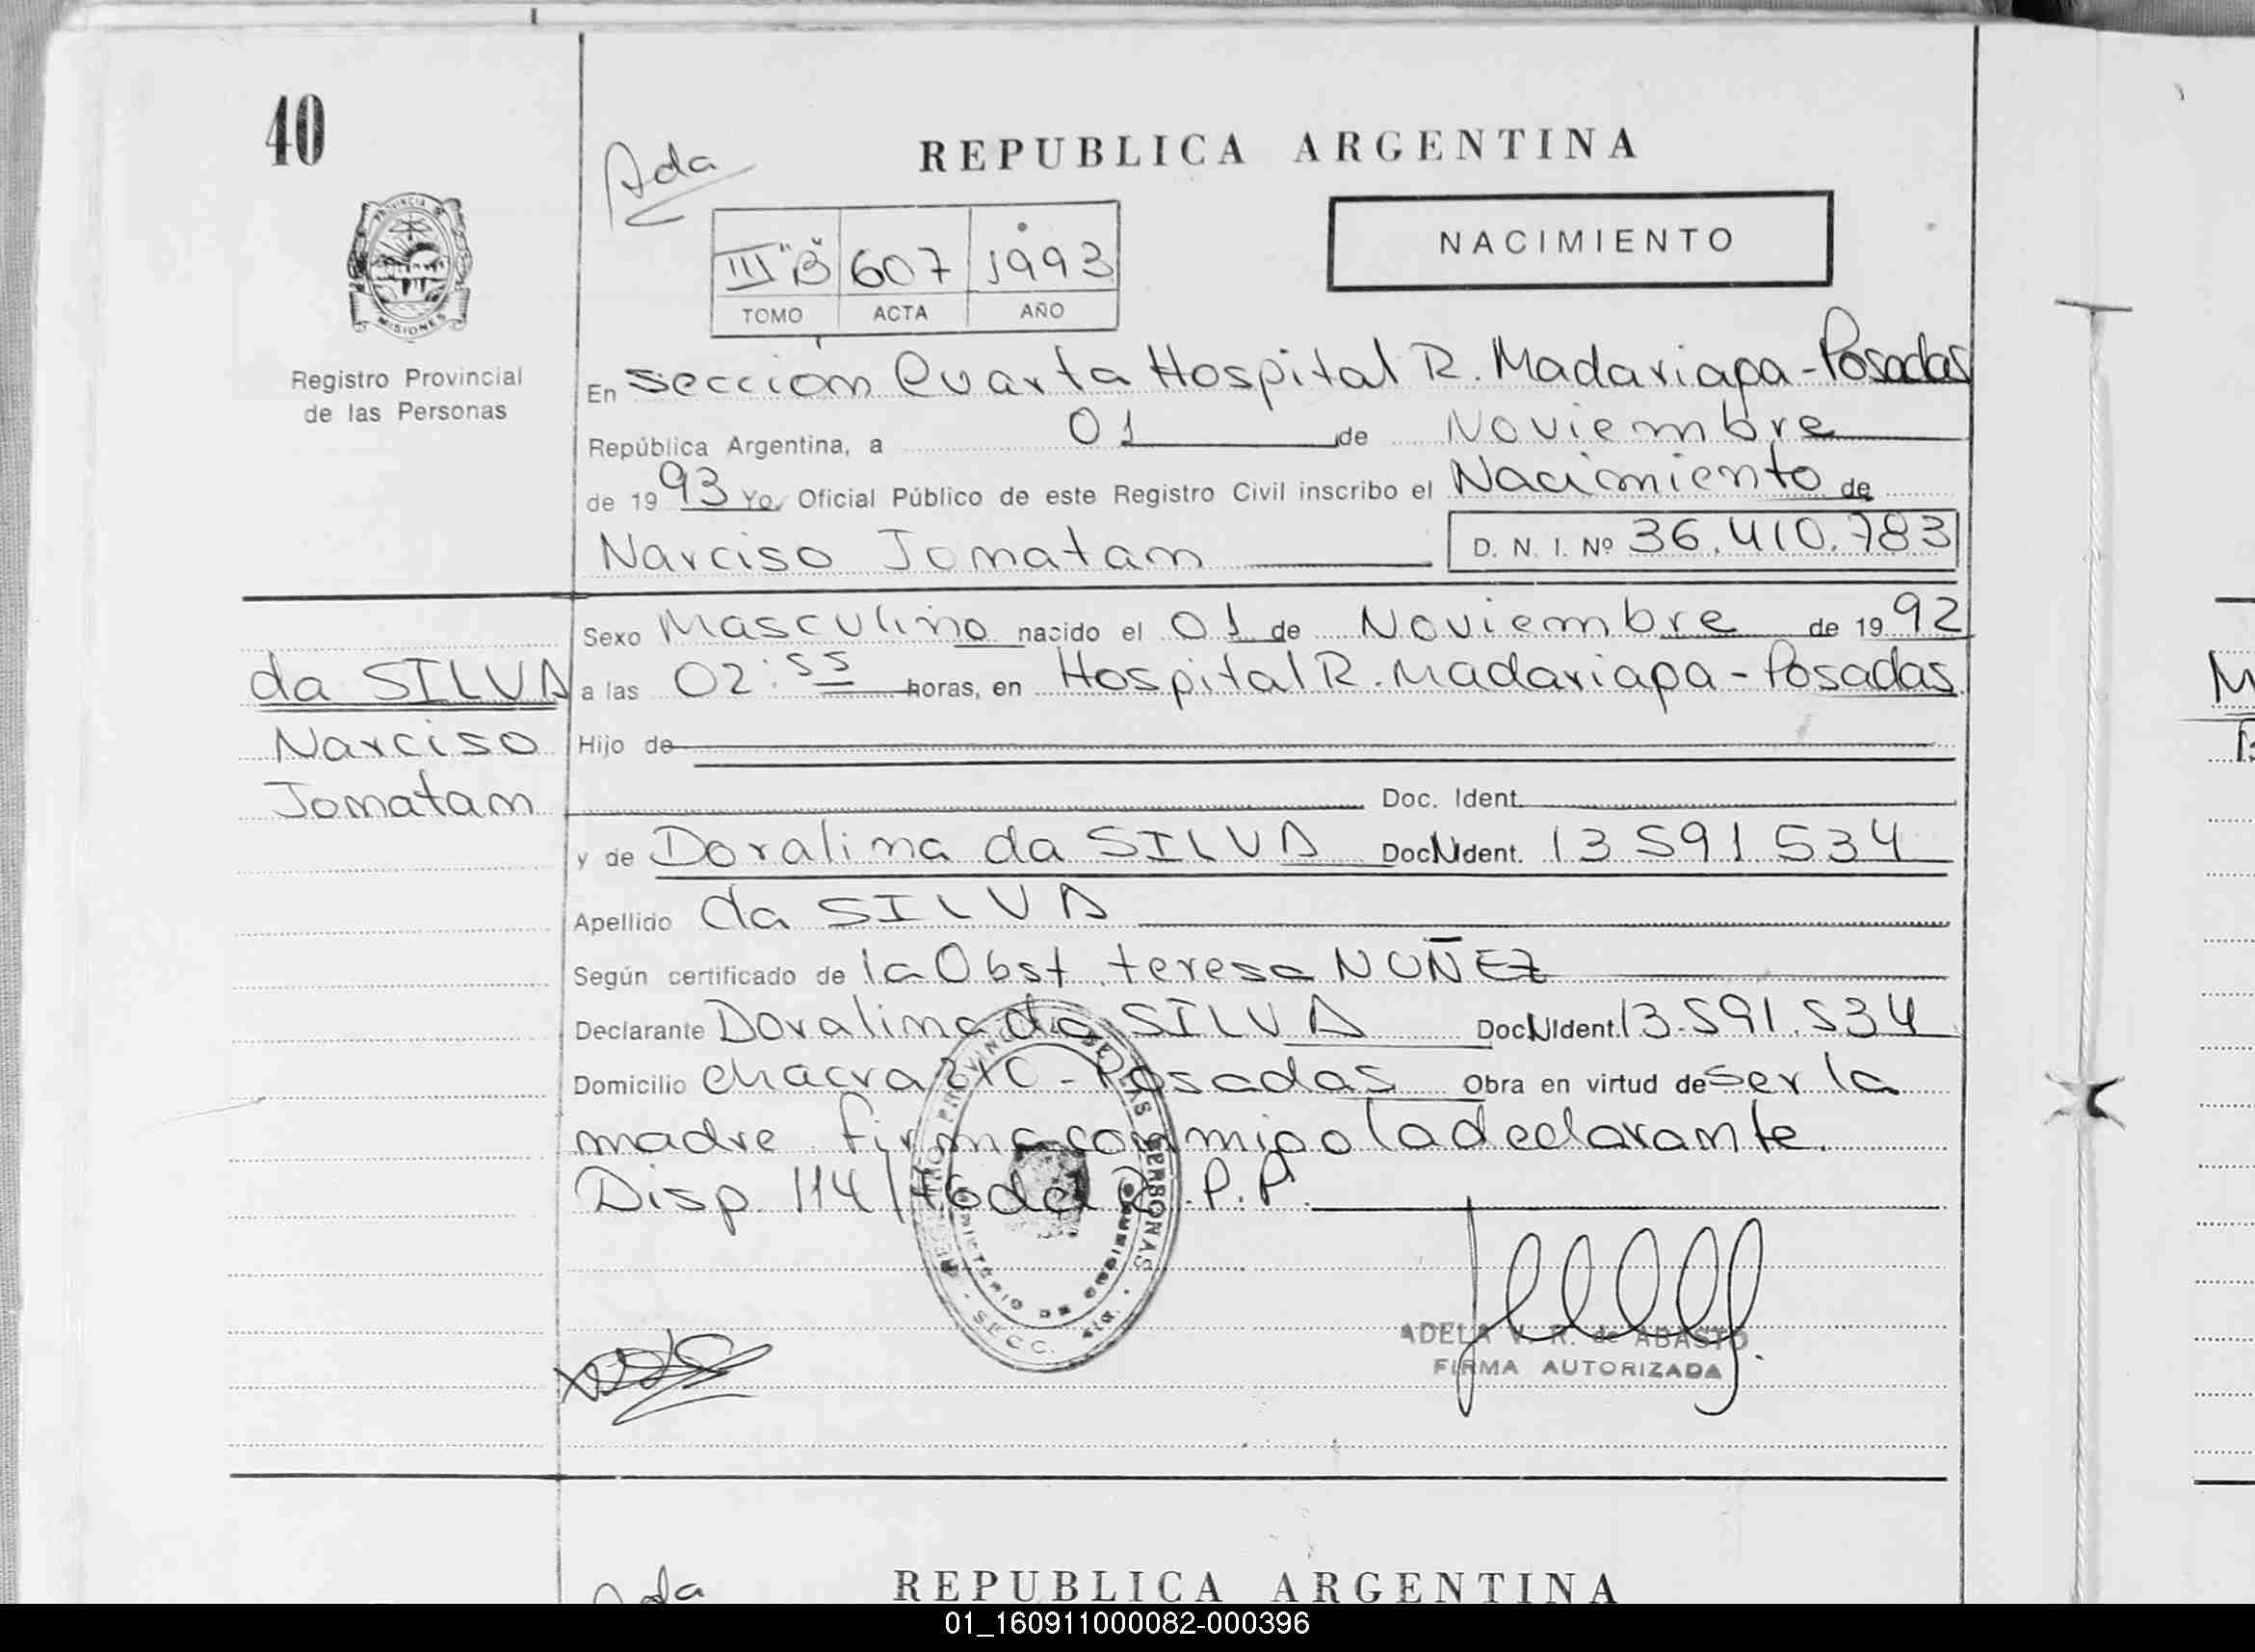 40
REPUBLICA ARGENTINA
Ada
NACIMIENTO
III "B" 607 1993
TOMO ACTA AÑO
PROVINCIA DE MISIONES
Registro Provincial
de las Personas
En Sección Cuarta Hospital R. Madariaga - Posadas
República Argentina, a 01 de Noviembre
de 1993 Yo, Oficial Público de este Registro Civil inscribo el Nacimiento de
Narciso Jonatan D. N. I. Nº 36.410.783
Sexo Masculino nacido el 01 de Noviembre de 1992
da SILVA
a las 02:55 horas, en Hospital R. Madariaga - Posadas
Narciso
Hijo de
Jonatan
Doc. Ident.
y de Doralina da SILVA Doc N Ident. 13 591 534
Apellido da SILVA
Según certificado de la Obst. teresa NUÑEZ
Declarante Doralina da SILVA Doc N Ident. 13.591.534
Domicilio chacra - Posadas Obra en virtud de ser la
madre firma conmigo la declarante.
Disp. 114/76 del R.P.P.
ADELA V. R. de ABASTO
FIRMA AUTORIZADA
Ada
REPUBLICA ARGENTINA
01_160911000082-000396